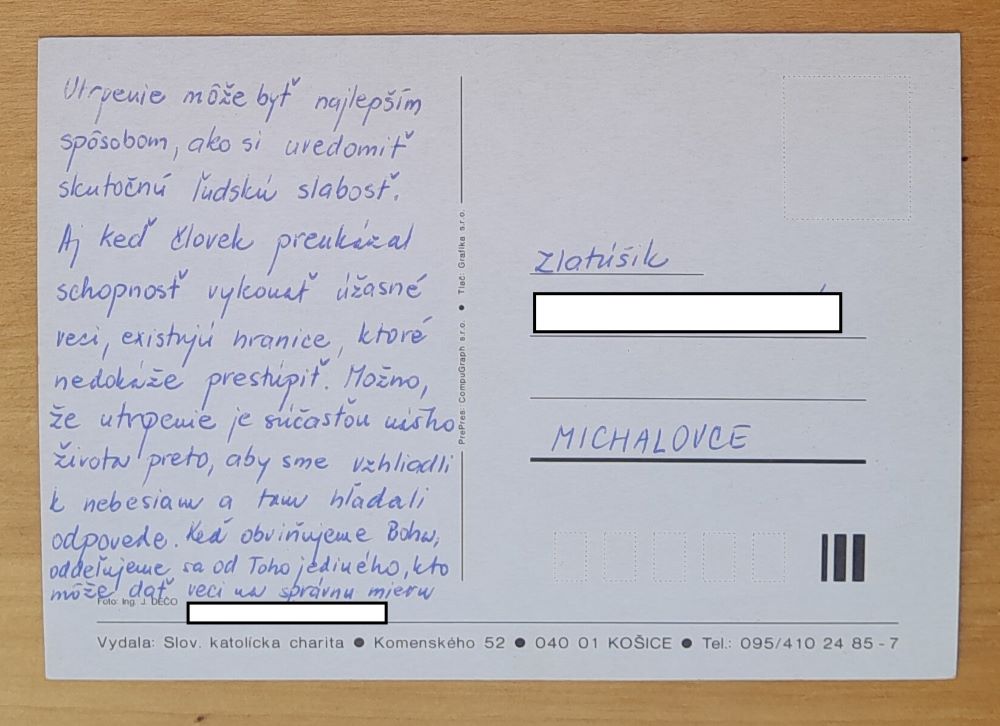 Utrpenie môže byť najlepším
spôsobom, ako si uvedomiť
skutočnú ľudskú slabosť.
Aj keď človek preukázal
schopnosť vykonať úžasné
veci, existujú hranice, ktoré
nedokáže prestúpiť. Možno,
že utrpenie je súčasťou nášho
života preto, aby sme vzhliadli
k nebesiam a tam hľadali
odpovede. Keď obviňujeme Boha,
oddeľujeme sa od Toho jediného, kto
môže dať veci na správnu mieru
Foto: Ing. J. DEČO
PrePres: CompuGraph s.r.o. ● Tlač: Grafika s.r.o.
Zlatúšik
MICHALOVCE
Vydala: Slov. katolícka charita ● Komenského 52 ● 040 01 KOŠICE ● Tel.: 095/410 24 85 - 7